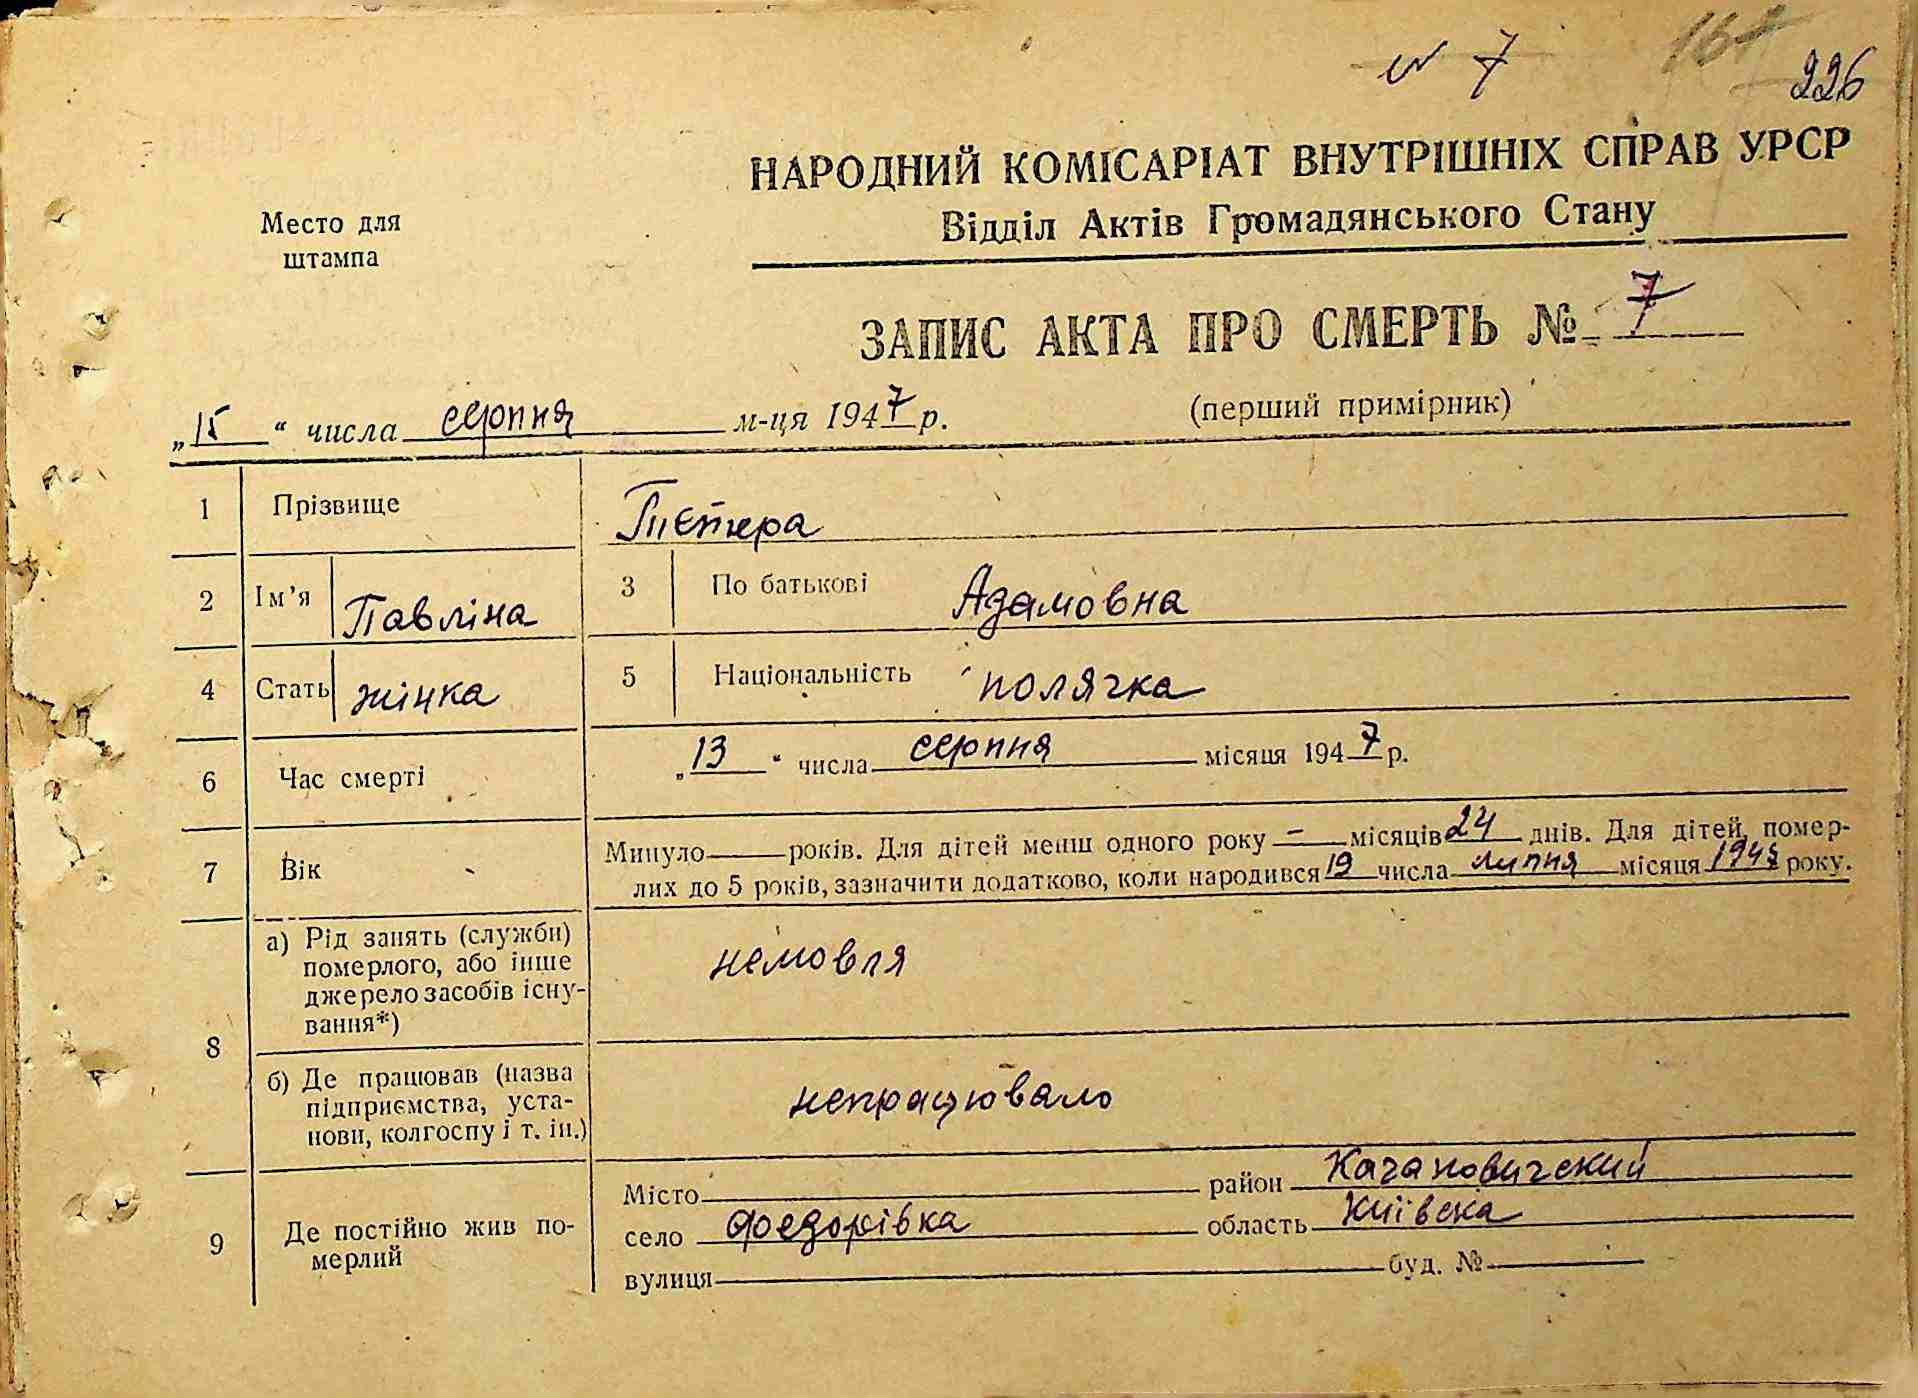 № 7
167
226
НАРОДНИЙ КОМІСАРІАТ ВНУТРІШНІХ СПРАВ УРСР
Відділ Актів Громадянського Стану
Место для
штампа
ЗАПИС АКТА ПРО СМЕРТЬ № 7
„15“ числа серпня м-ця 1947 р. (перший примірник)
1 Прізвище Пєткера
2 Ім'я Павліна 3 По батькові Адамовна
4 Стать жінка 5 Національність полячка
6 Час смерті „13“ числа серпня місяця 1947 р.
7 Вік Минуло — років. Для дітей менш одного року — місяців 24 днів. Для дітей, помер-
лих до 5 років, зазначити додатково, коли народився 19 числа липня місяця року.
8 а) Рід занять (служби)
померлого, або інше
джерело засобів існу-
вання*) немовля
б) Де працював (назва
підприємства, уста-
нови, колгоспу і т. ін.) непрацювало
9 Де постійно жив по-
мерлий
Місто район Кагановичский
село Федорівка область Київска
вулиця буд. №